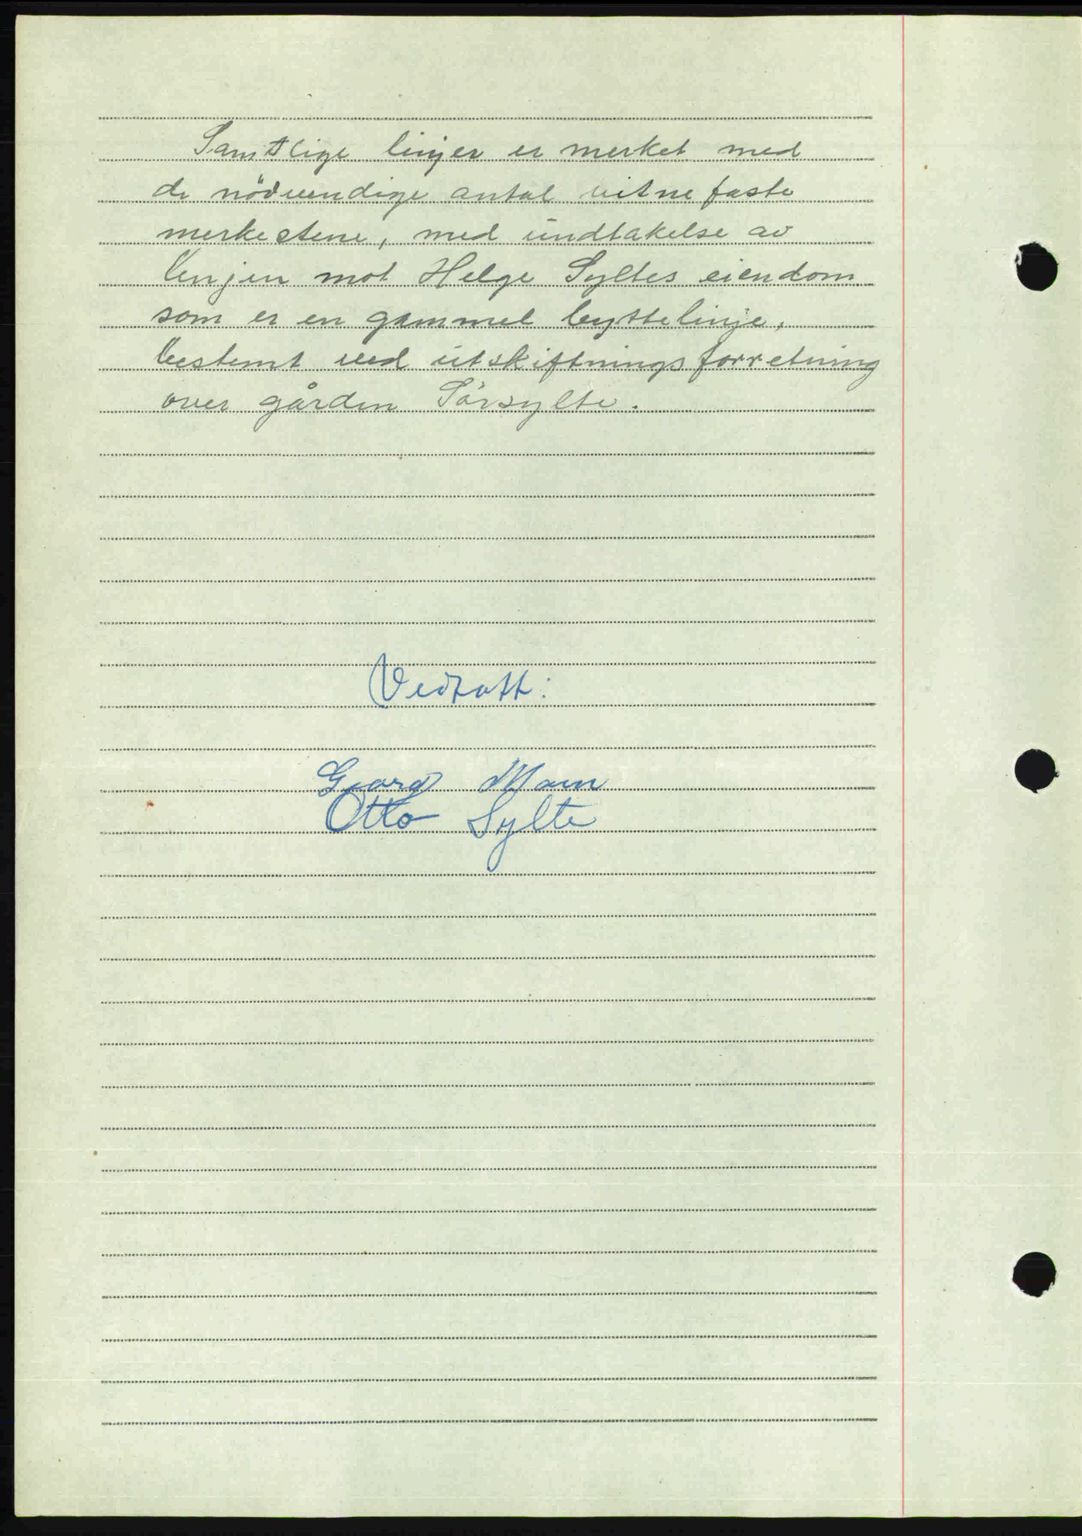 Samtlige linjer er merket med
de nödvendige antal vitnefaste
merkestene, med undtakelse av
linjen mot Helge Syltes eiendom
som er en gammel byttelinje,
bestemt ved utskiftningsforretning
over gården Sörsylte.
Vedtatt:
Georg
Otto Sylte